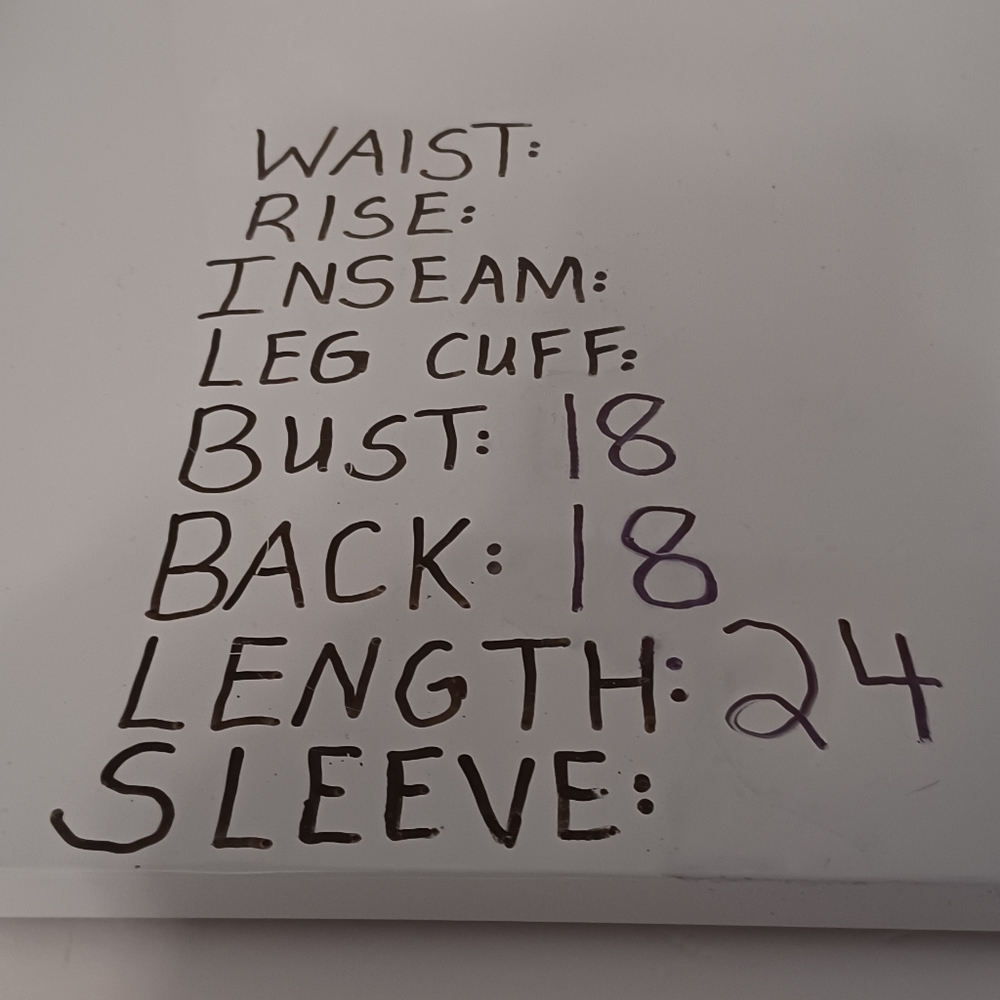 WAIST:
RISE:
INSEAM:
LEG CUFF:
BUST: 18
BACK: 18
LENGTH: 24
SLEEVE: